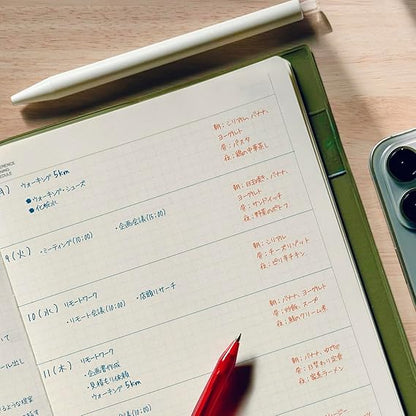 月)
ウォーキング 5km
●ウォーキング・シューズ
●化粧水
朝:シリアル、バナナ、
ヨーグルト
昼:パスタ
夜:鶏の中華蒸し
9(火)
・ミーティング(10:00)
・企画会議(15:00)
朝:目玉焼き、バナナ、
ヨーグルト
昼:サンドイッチ
夜:野菜のポトフ
10(水)
リモートワーク
・リモート会議(10:00)
・店頭リサーチ
朝:シリアル
昼:チーズリゾット
夜:ピリ辛チキン
11(木)
リモートワーク
・企画書作成
・見積もり依頼
ウォーキング 5km
朝:バナナ、ヨーグルト
昼:炒飯、スープ
夜:鮭のクリーム煮
朝:バナナ、ゆで卵
昼:日替わり定食
夜:塩玉ラーメン